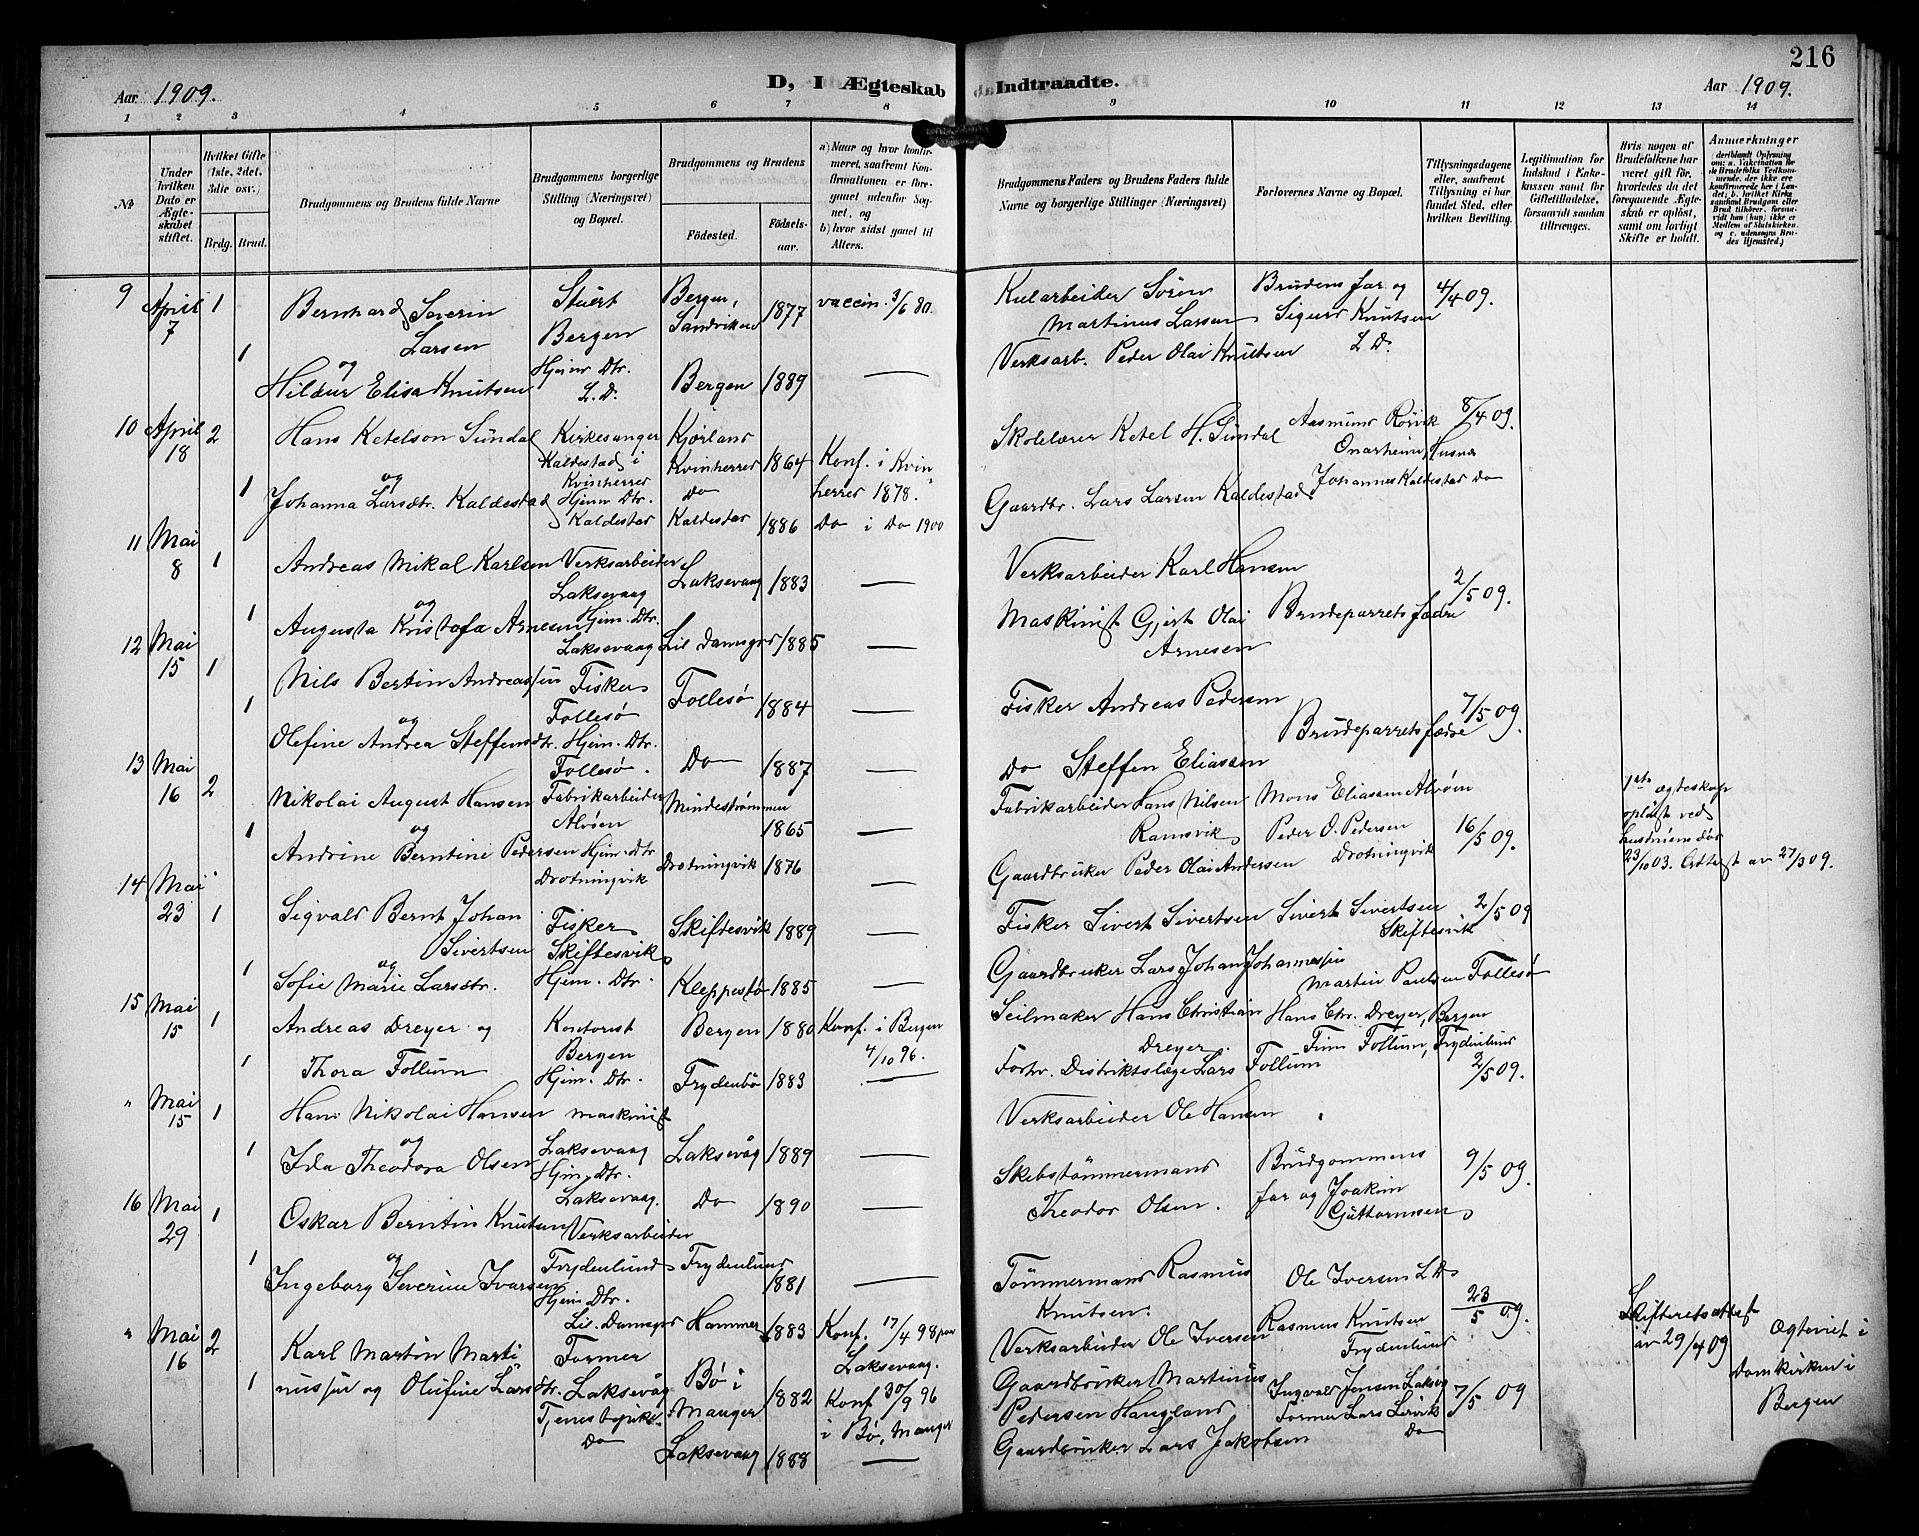 216
D, I Ægteskab Indtraadte.
Aar 1909.
Aar 1909.
1 2 3 4 5 6 7 8 9 10 11 12 13 14
No
Under hvilken Dato er Ægteskabet stiftet.
Hvilket Gifte (1ste, 2det, 3die osv.)
Brdg. Brud.
Brudgommens og Brudens fulde Navne
Brudgommens borgerlige Stilling (Næringsvei) og Bopæl.
Brudgommens og Brudens
Fødested.
Fødselsaar.
a) Naar og hvor konfirmeret, saafremt Konfirmationen er foregaaet udenfor Sognet, og
b) hvor sidst gaaet til Alters.
Brudgommens Faders og Brudens Faders fulde Navne og borgerlige Stillinger (Næringsvei)
Forlovernes Navne og Bopæl.
Tillysningsdagene eller, saafremt Tillysning ei har fundet Sted, efter hvilken Bevilling.
Legitimation for Indskud i Enkekassen samt for Giftetilladelse, forsaavidt saadan tiltrænges.
Hvis nogen af Brudefolkene har været gift før, hvorledes da det foregaaende Ægteskab er opløst, samt om lovligt Skifte er holdt.
Anmærkninger
9 April 7 1 Bernhard Severin Larsen Stuert Bergen Bergen, Sandviken 1877 vaccin. 3/6 80. Kularbeider Sören Martinus Larsen Brudens far og Sigurd Knutsen L D. 4/4 09.
og
1 Hildur Elisa Knutsen Hjemv Dtr. L. D. Bergen 1889 — Verksarb. Peder Olai Knutsen
10 April 18 2 Hans Ketelson Sundal Kirkesanger Kaldestad i Kvinherrer Kvinherrer 1864 Konf. i Kvinherrer 1878. Skolelærer Ketel H. Sundal Aasmund Rörvik Onarheim, Husnæs 8/4 09.
og
1 Johanna Larsdtr. Kaldestad Hjemv Dtr. Kaldestad Do Kaldestad 1886 Do i Do 1900 Gaardbr. Lars Larsen Kaldestad Johannes Kaldestad Do
11 Mai 8 1 Andreas Mikal Karlsen Verksarbeider Laksevaag Laksevaag 1883 — Verksarbeider Karl Hansen Brudeparrets fædre 2/5 09.
og
1 Augusta Kristofa Arnesen Hjem. Dtr. Laksevaag Lil Damsgrd 1885 — Maskinist Gjert Olai Arnesen
12 Mai 15 1 Nils Bertin Andreassen Fisker Follesø Follesø 1884 — Fisker Andreas Pedersen Brudeparrets fædre 7/5 09.
og
1 Olefine Andrea Steffensdtr. Hjem. Dtr. Follesø. Do 1887 — Do Steffen Eliassen
13 Mai 16 2 Nikolai August Hansen Fabrikarbeider Alvøen Mindestrømmen 1865 — Fabrikarbeider Hans Nilsen Ramsvik Mons Eliassen Alvøen 16/5 09. 1ste ægteskap opløst ved hustruens død 23/10 03. Attest av 27/3 09.
og
1 Andrine Berntine Pedersen Hjem. Dtr Drotningvik Drotningvik 1876 — Gaardbruker Peder Olai Andersen Peder O. Pedersen Drotningvik
14 Mai 23 1 Sigvald Bernt Johan Sivertsen Fisker Skiftesvik Skiftesvik 1889 — Fisker Sivert Sivertsen Sivert Sivertsen Skiftesvik 2/5 09
og
1 Sofie Marie Larsdtr. Hjem. Dtr. Kleppestø 1885 — Gaardbruker Lars Johan Johannessen Martin Paulsen Follesø
15 Mai 15 1 Andreas Dreyer og Kontorist Bergen Bergen 1880 Konf. i Bergen 4/10 96. Seilmaker Hans Christian Dreyer. Hans Chr. Dreyer, Bergen
1 Thora Follum Hjem. Dtr. Frydenbø 1883 — Forhv. Distriktslæge Lars Follum Finn Follum, Frydenlund 2/5 09.
" Mai 15 1 Hans Nikolai Hansen Maskinist Laksevaag Laksevåg 1889 — Verksarbeider Ole Hansen Brudgommens far og Joakim Guttormsen 9/5 09.
og
1 Ida Theodora Olsen Hjem. Dtr. Laksevaag. Do 1890 — Skibstømmermand Theodor Olsen.
16 Mai 29 1 Oskar Berntin Knutsen Verksarbeider Frydenlund Frydenlund 1881 — Tömmermand Rasmus Knutsen. Ole Iversen L D 23/5 09.
og
1 Ingeborg Severine Ivarsen Hjem Dtr. Lil. Damsgrd Hammer 1883 Konf. 17/4 98 paa Laksevaag. Verksarbeider Ole Iversen Rasmus Knutsen Frydenlund
" Mai 16 2 Karl Martin Martinussen og Former Laksevåg Bø i Manger 1882 Konf 30/9 96 i Bø, Manger Gaardbruker Martinus Pedersen Haugland Ingvald Jensen Laksevg 7/5 09 Skifteretsattest av 29/4 09 Ægteviet i Domkirken i Bergen
1 Olufine Larsdtr. Tjenestepike Do Laksevaag 1888 — Gaardbruker Lars Jakobsen Former Lars Lervik Do